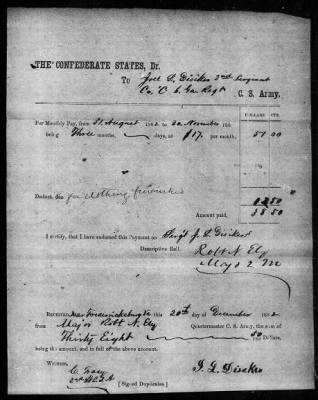 THE CONFEDERATE STATES, Dr.
To Joel L. Disiker 2nd Sergeant
Co. C 6 Ga Regt C. S. Army.
DOLLARS. CTS.
For Monthly Pay, from 31 August 1862 to 30 November 186
being Three months days, at $17. per month, 51 00
Deduct, for clothing
12 50
Amount paid, 38 50
I certify, that I have endorsed this Payment on Serg't J. L. Disiker's
Descriptive Roll.
Robt N. Ely
Maj & 2 M
Received, near Fredericksburg Va this 20th day of December 1862
from Major Robt N. Ely Quartermaster C. S. Army, the sum of
Thirty Eight 50/100 Dollars,
being the amount, and in full of the above account.
Witness,
J. L. Disiker
[Signed Duplicates.]